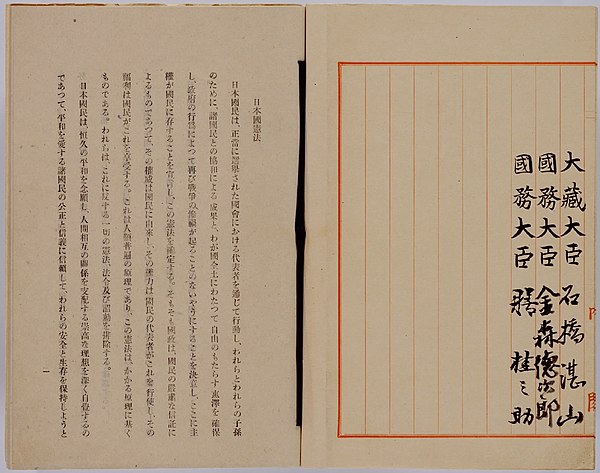 大藏大臣 石橋湛山
國務大臣 金森德次郎
國務大臣 膳桂之助
日本國憲法
日本國民は、正當に選擧された國會における代表者を通じて行動し、われらとわれらの子孫
のために、諸國民との協和による成果と、わが國全土にわたつて自由のもたらす惠澤を確保
し、政府の行爲によつて再び戰爭の慘禍が起ることのないやうにすることを決意し、ここに主
權が國民に存することを宣言し、この憲法を確定する。そもそも國政は、國民の嚴肅な信託に
よるものであつて、その權威は國民に由來し、その權力は國民の代表者がこれを行使し、その
福利は國民がこれを享受する。これは人類普遍の原理であり、この憲法は、かかる原理に基く
ものである。われらは、これに反する一切の憲法、法令及び詔敕を排除する。
日本國民は、恒久の平和を念願し、人間相互の關係を支配する崇高な理想を深く自覺するの
であつて、平和を愛する諸國民の公正と信義に信賴して、われらの安全と生存を保持しようと
一